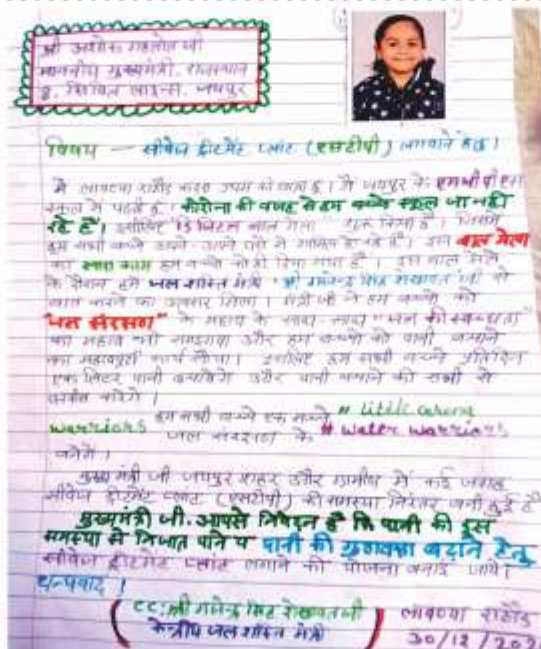 श्री अशोक गहलोत जी
माननीय मुख्यमंत्री, राजस्थान
8, सिविल लाइन्स, जयपुर
विषय — सीवेज ट्रीटमेंट प्लांट (एसटीपी) लगवाने हेतु।
मैं लावण्या राठौड़ कक्षा की छात्रा हूं। मैं जयपुर के एमजीपीएस
स्कूल में पढ़ती हूं। कोरोना की वजह से हम बच्चे स्कूल जा नहीं
रहे हैं। इसलिए डिजिटल बाल मेला शुरू किया है। जिसमें
हम सभी बच्चे अपने अपने घरों से रहे है। इस बाल मेला
का सारा काम हम बच्चों को ही दिया गया है। इस बाल मेले
के दौरान हमें जल शक्ति मंत्री श्री गजेन्द्र सिंह शेखावत जी से
बात करने का अवसर मिला। मंत्री जी ने हम बच्चों को
"जल संरक्षण" के महत्व के साथ-साथ "जल की स्वच्छता"
का महत्व भी समझाया और हम बच्चों को पानी बचाने
का महत्वपूर्ण कार्य सौंपा। इसलिए हम सभी बच्चे प्रतिदिन
एक लिटर पानी बचायेंगे और पानी बचाने की सभी से
करेंगे।
हम सभी बच्चे एक सच्चे # little corona
warriors जल संरक्षण के # water warriors
बनेंगे।
मुख्य मंत्री जी जयपुर शहर और ग्रामीण में कई जगह
सीवेज ट्रीटमेंट प्लांट (एसटीपी) की समस्या निरंतर बनी हुई है
मुख्यमंत्री जी. आपसे निवेदन है कि पानी की इस
समस्या से निजात पाने व पानी की गुणवत्ता बढ़ाने हेतु
सीवेज ट्रीटमेंट प्लांट लगाने की योजना बनाई जाये।
धन्यवाद।
CC: श्री गजेन्द्र सिंह शेखावत जी
केन्द्रीय जल शक्ति मंत्री
लावण्या राठौड़
30/12/202